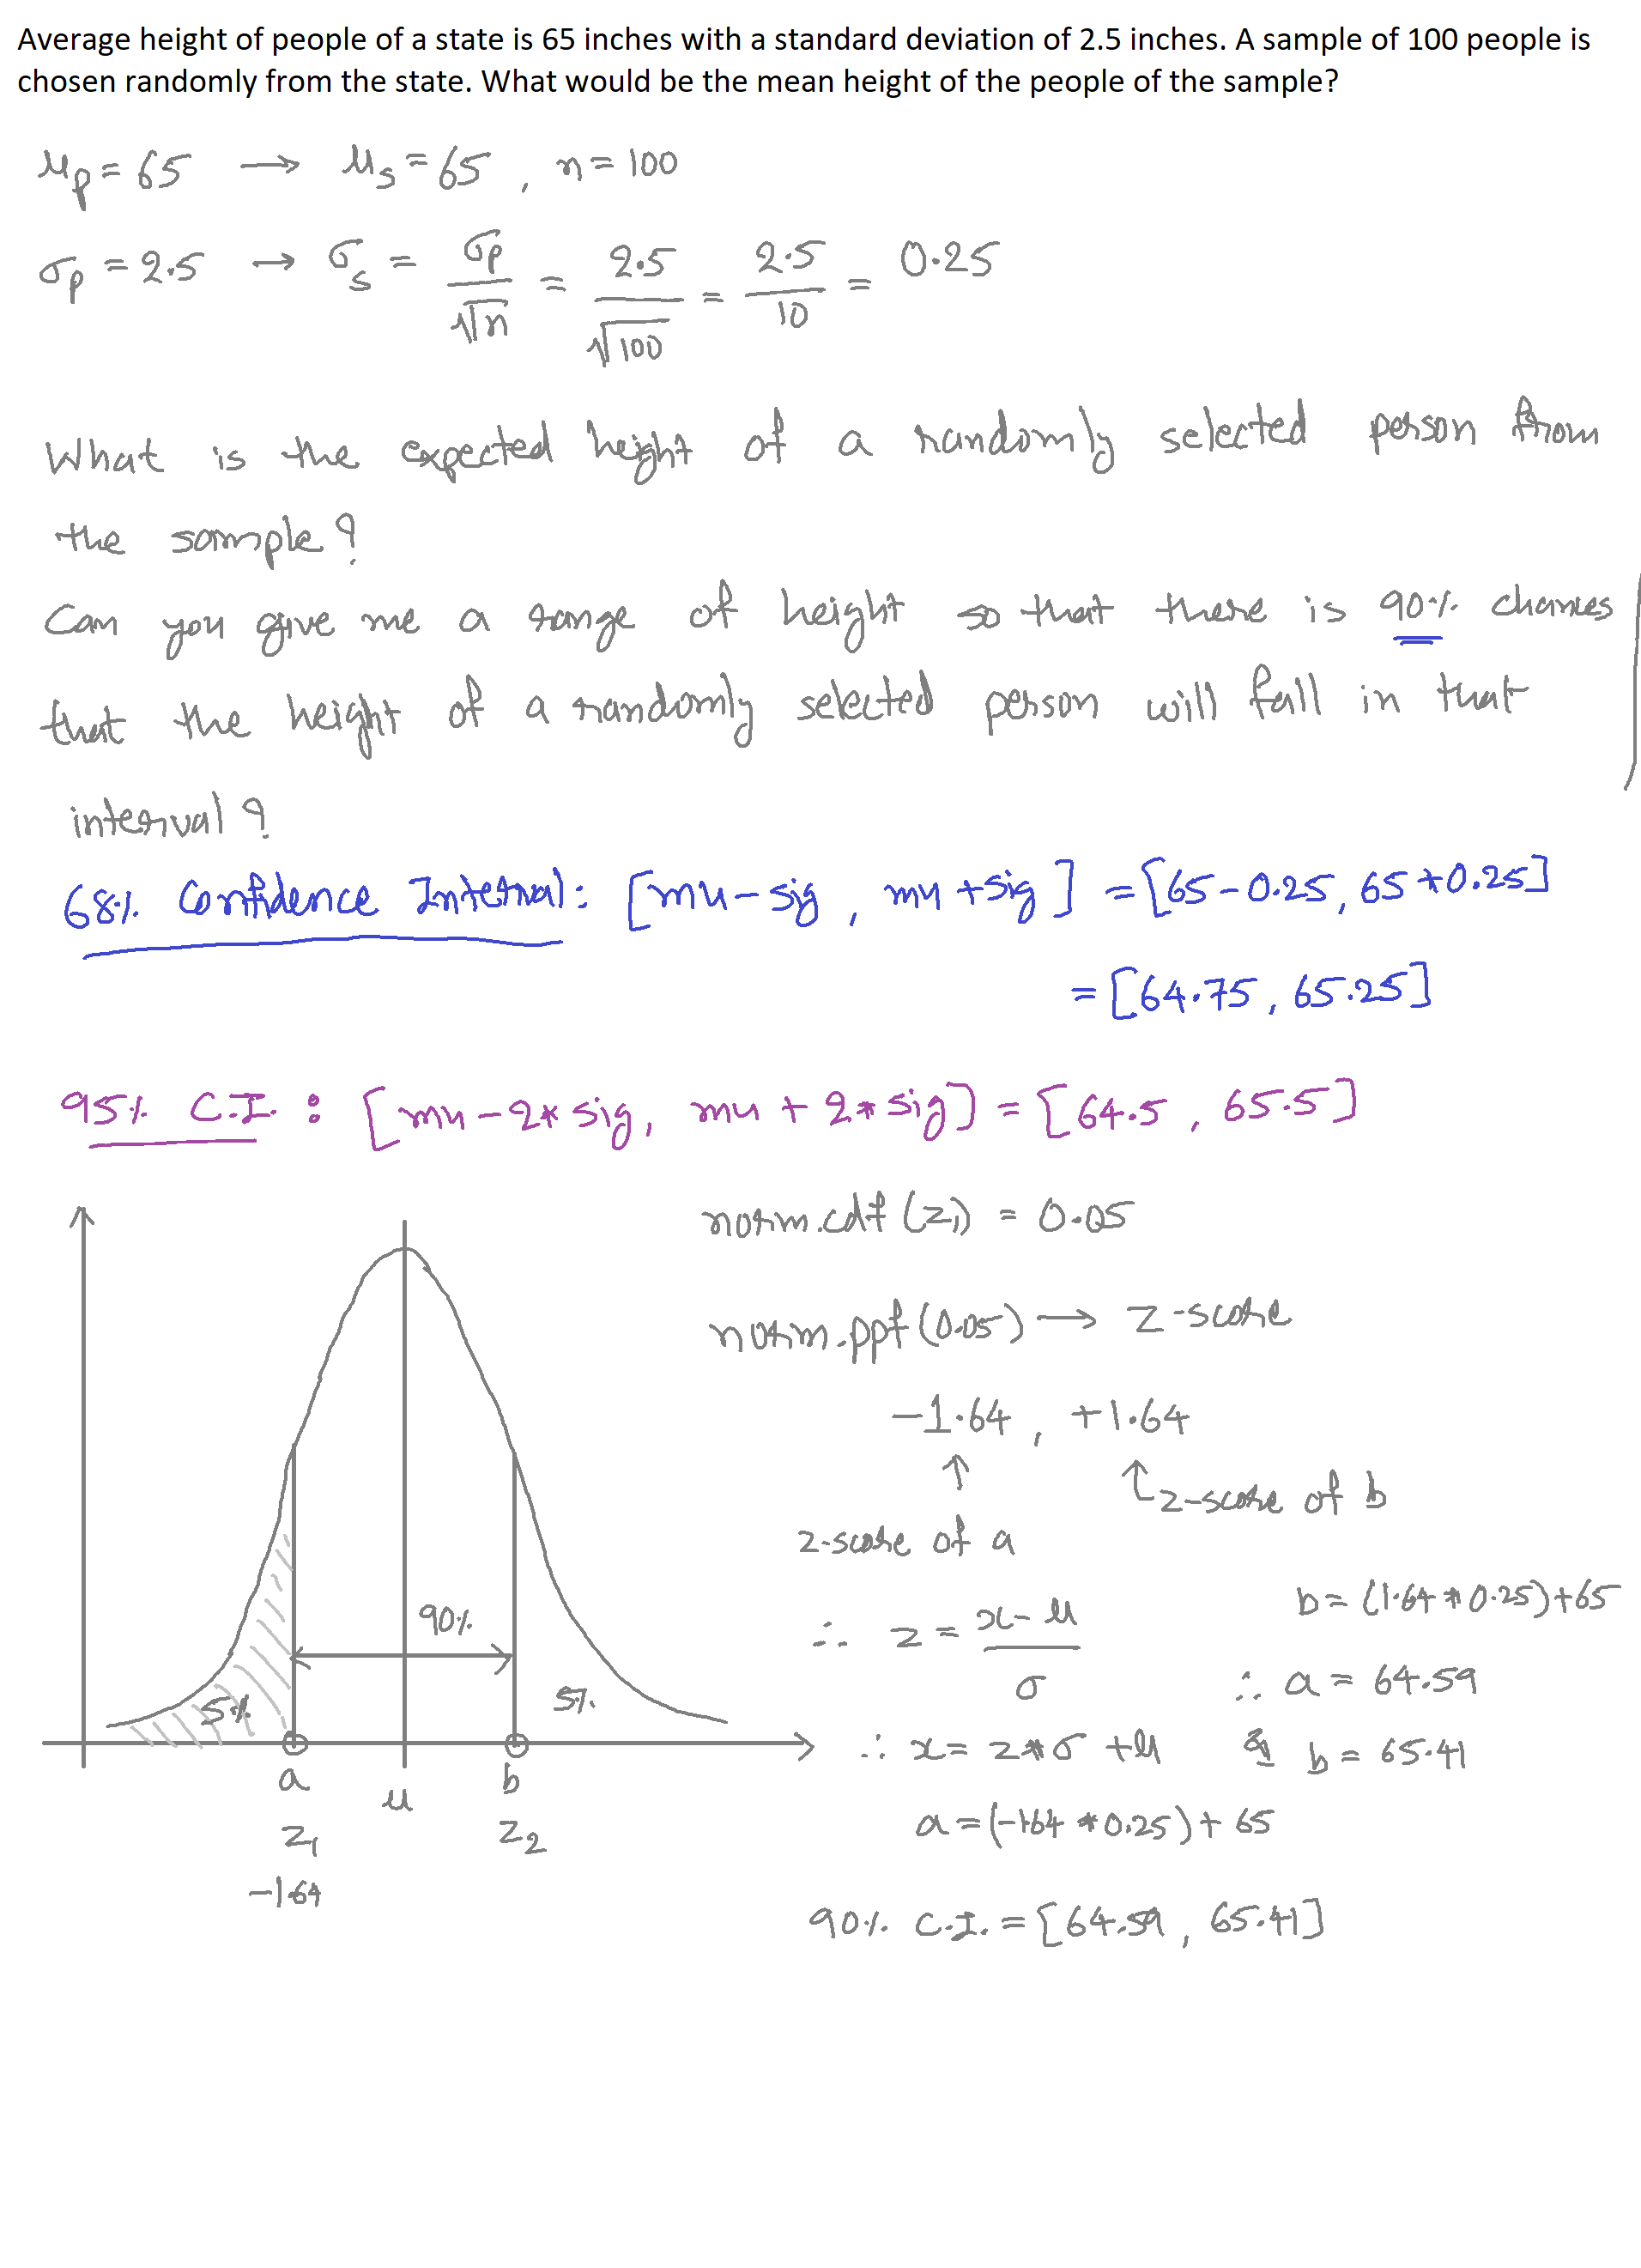 Average height of people of a state is 65 inches with a standard deviation of 2.5 inches. A sample of 100 people is
chosen randomly from the state. What would be the mean height of the people of the sample?
μp = 65 → μs = 65 , n = 100
σp = 2.5 → σs = σp / √n = 2.5 / √100 = 2.5 / 10 = 0.25
What is the expected height of a randomly selected person from
the sample ?
Can you give me a range of height so that there is 90% chances
that the height of a randomly selected person will fall in that
interval ?
68% Confidence Interval : [mu - sig , mu + sig] = [65 - 0.25, 65 + 0.25]
= [64.75, 65.25]
95% C.I. : [mu - 2* sig, mu + 2* sig] = [64.5 , 65.5]
norm.cdf (z1) = 0.05
norm.ppf (0.05) → z-score
-1.64 , +1.64
↑ ↑
z-score of b
z-score of a
b = (1.64 * 0.25) + 65
∴ z = x - μ / σ
90%
∴ a = 64.59
5% 5%
∴ x = z * σ + μ & b = 65.41
a μ b
a = (-1.64 * 0.25) + 65
z1 z2
-1.64
90% C.I. = [64.59 , 65.41]